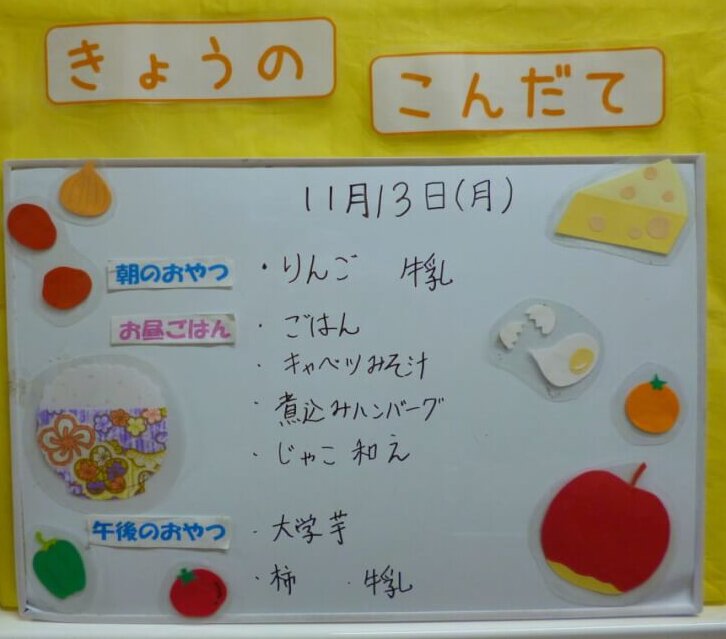 きょうの こんだて
11月13日(月)
朝のおやつ ・りんご 牛乳
お昼ごはん ・ごはん
・キャベツみそ汁
・煮込みハンバーグ
・じゃこ和え
午後のおやつ ・大学芋
・柿 ・牛乳